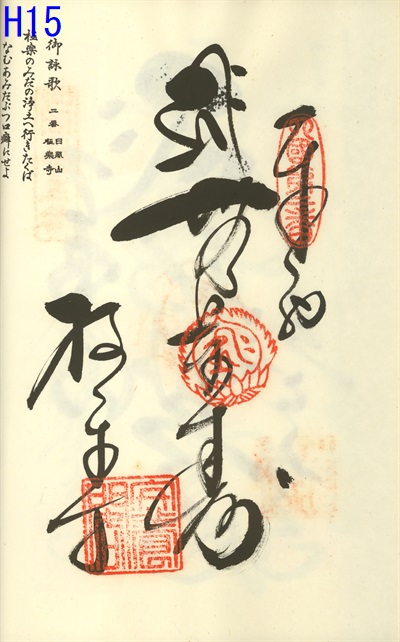 H15
奉納
無量寿
極楽寺
御詠歌 二番 日照山 極楽寺
極楽のみだの浄土へ行きたくば
なむあみだぶつ口癖にせよ